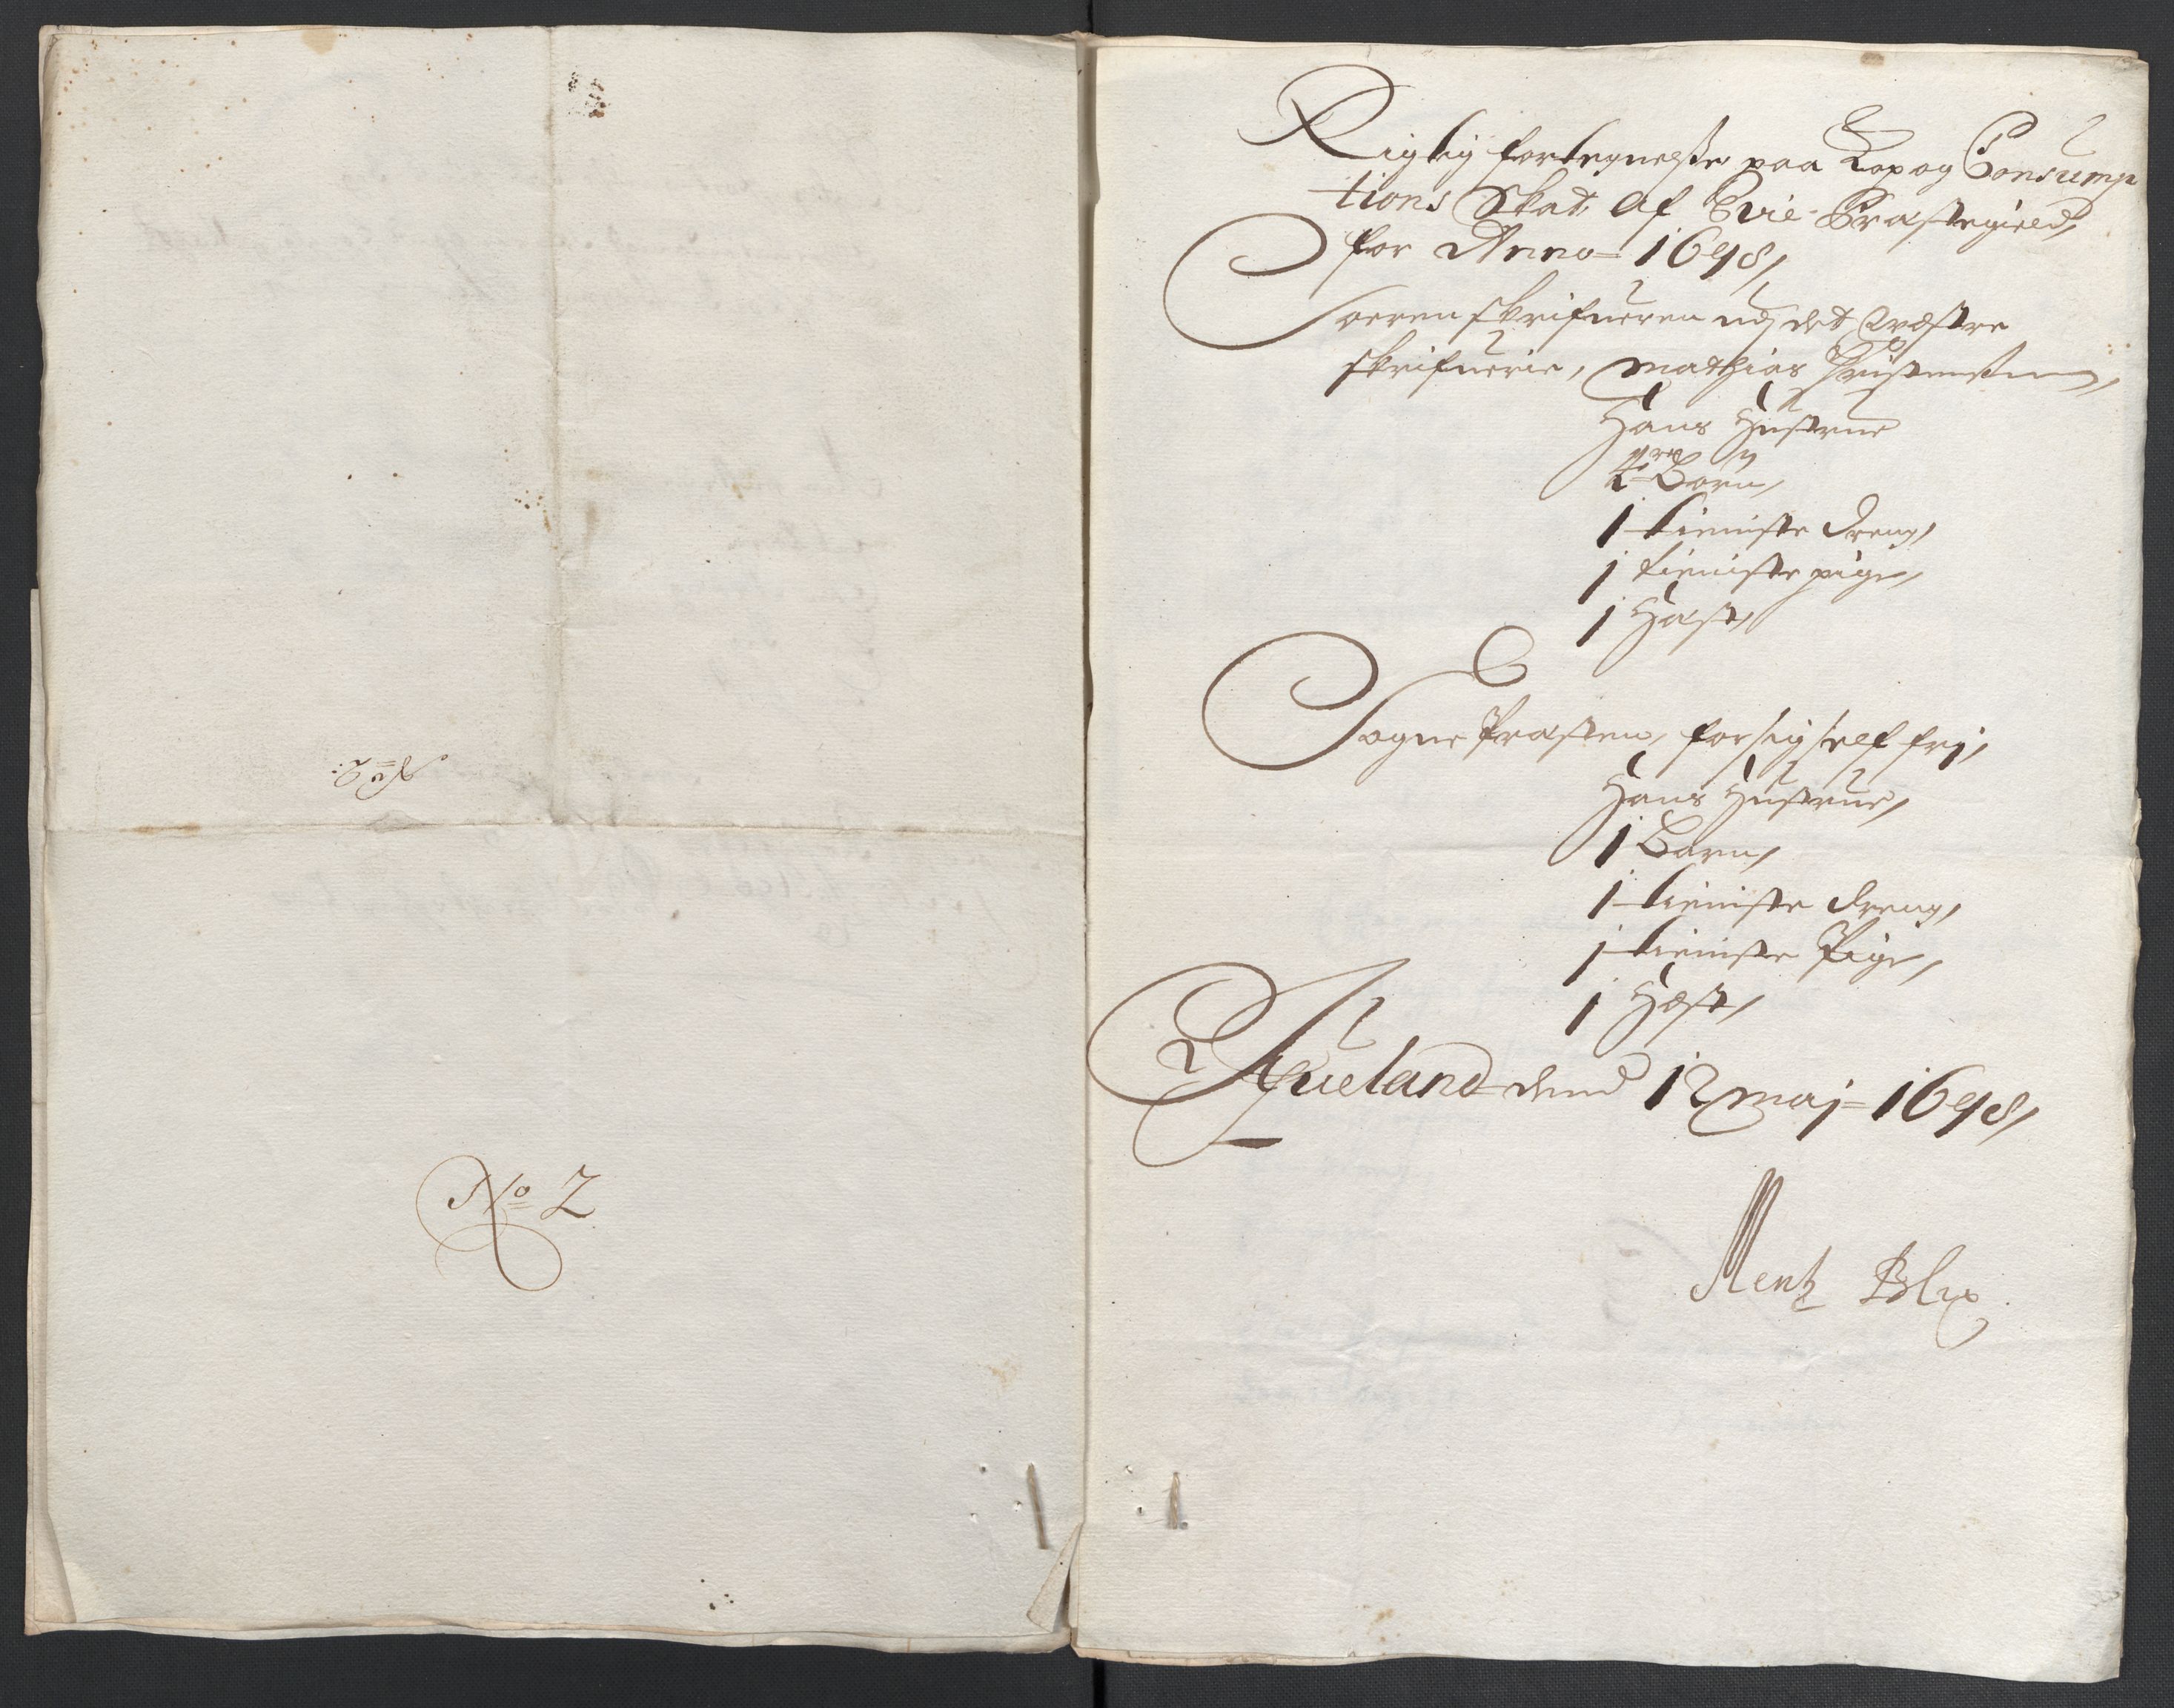 No 2:
No 2
Rigtig fortegnelse paa Kop og Consump
tions Skat, af Evie Præstegield,
for Anno = 1698,
Soerenskrifueren udj det Westre
skrifuerie, Mathias Christensen,
Hans Hustrue
Børn,
1 tieniste dreng,
1 tieniste pige,
1 Hæst,
Sogne Præsten, for sig self frj,
Hans Hustrue,
1 Barn,
1 tieniste dreng,
1 tieniste Pige,
1 Hæst,
Aueland dend 12 Maj = 1698,
Mentz Blix.